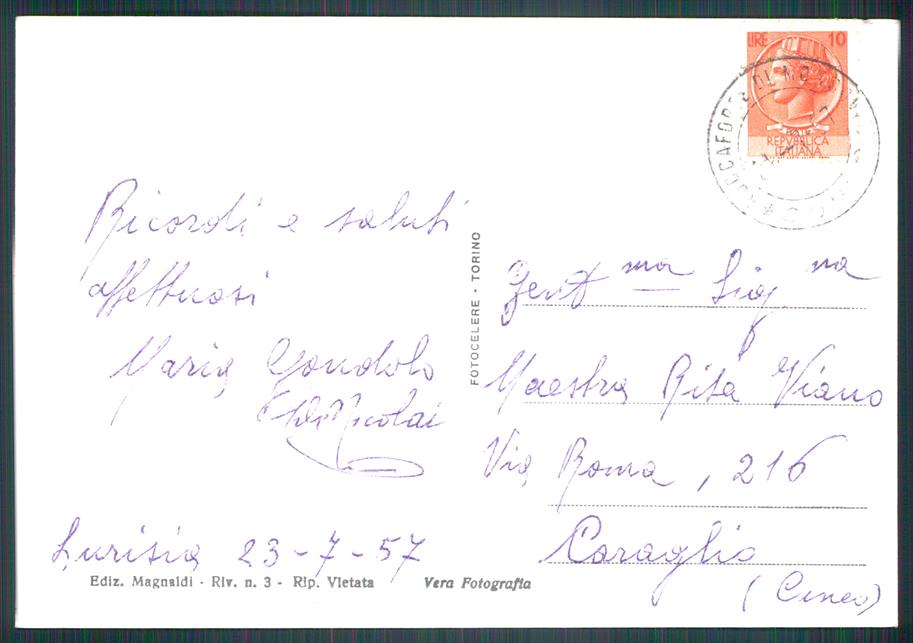 LIRE 10
REPVBBLICA
ITALIANA
Ricordi e saluti
affettuosi
Maria Gondolo
Nicolai
Lurisia 23-7-57
Ediz. Magnaldi - Riv. n. 3 - Rip. Vietata Vera Fotografia
FOTOCELERE - TORINO
Gent.ma Sig.na
Maestra Rita Viano
Via Roma, 216
Caraglio
(Cuneo)